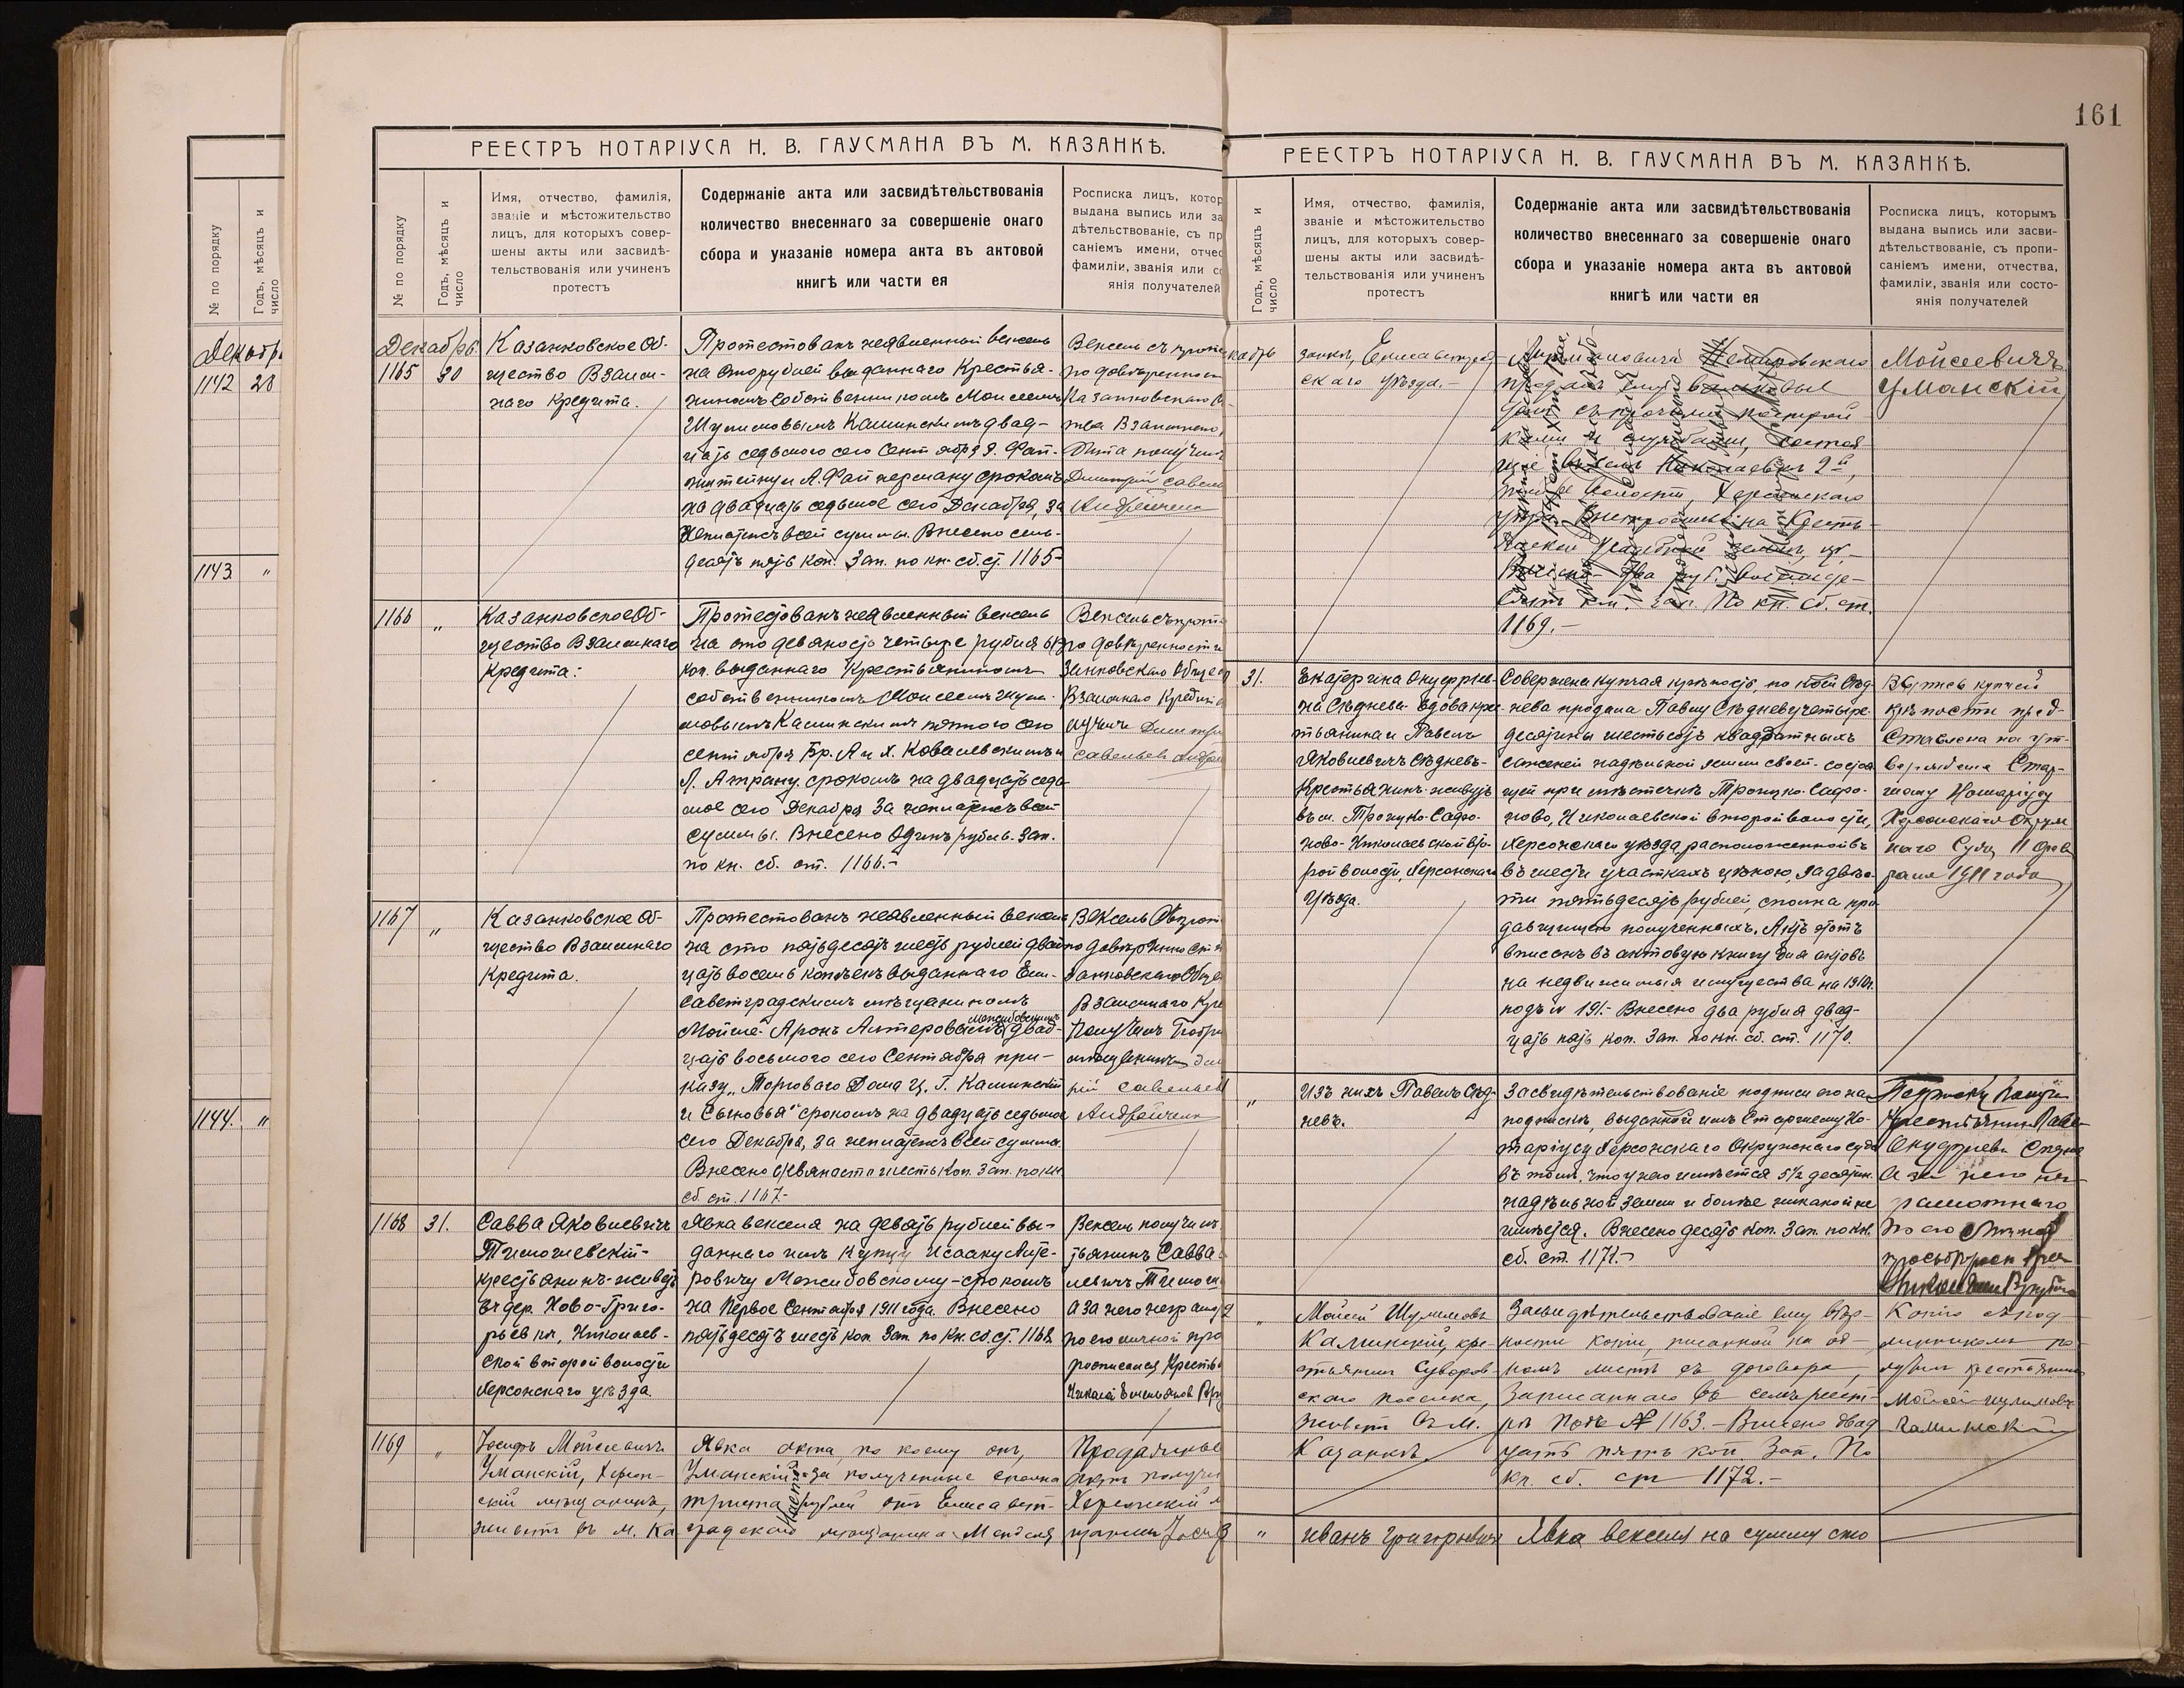 161
РЕЕСТРЪ НОТАРІУСА Н. В. ГАУСМАНА ВЪ М. КАЗАНКѢ.
№ по порядку
Годъ, мѣсяцъ и
число
Имя, отчество, фамилія,
званіе и мѣстожительство
лицъ, для которыхъ совер-
шены акты или засвидѣ-
тельствованія или учиненъ
протестъ
Содержаніе акта или засвидѣтельствованія
количество внесеннаго за совершеніе онаго
сбора и указаніе номера акта въ актовой
книгѣ или части ея
Росписка лицъ, котор
выдана выпись или за
дѣтельствованіе, съ пр
саніемъ имени, отчес
фамиліи, званія или со
янія получателей
№ по порядку
Годъ, мѣсяцъ и
число
Декабрь
1142 28
1143 "
1144. "
Декабрь
1165 30
Казанковское Об-
щество Взаим-
наго Кредита.
Протестованъ неявленный вексель
на сто рублей выданнаго Крестья-
ниномъ собственникомъ Моисеемъ
Шулимовымъ Каминскимъ двад-
цать седьмого сего Сентября Я. Фай-
нштейну и А. Файнерману срокомъ
на двадцать седьмое сего Декабря, за
неплатежъ всей суммы. Внесено семь-
десятъ пять коп. Зап. по кн. сб. ст. 1165-
Вексель съ проте
по довѣренност
Казанковскаго О
тва Взаимнаго
дита получилъ
Дмитрій Савель
Андрейченко
1166 "
Казанковское Об-
щество Взаимнаго
Кредита:
Протестованъ неявленный вексель
на сто девяносто четыре рубля 61
коп. выданнаго Крестьяниномъ
собственникомъ Моисеемъ Шули-
мовымъ Каминскимъ пятого сего
сентября Бр. А и Х. Ковалевскимъ и
срокомъ на двадцать седь-
мое сего Декабря за неплатежъ всей
суммы. Внесено Одинъ рубль. Зап.
по кн. сб. ст. 1166.-
Вексель съ прот
по довѣренности
занковскаго Общес
Взаимнаго Кредита
лучилъ Дмитрі
Савельевъ Андре
1167 "
Казанковское Об-
щество Взаимнаго
Кредита.
Протестованъ неявленный вексель
на сто пятьдесятъ шесть рублей двад-
цать восемь копѣекъ выданнаго Ели-
саветградскимъ мѣщаниномъ
Межибовскимъ
Мойше-Аронъ Алтеровымъ двад-
цать восьмого сего Сентября при-
казу „Торговаго Дома Ц. Г. Каминскій
и Сыновья" срокомъ на двадцать седьмое
сего Декабря, за неплатежъ всей суммы.
Внесено девяносто шесть Коп. Зап. по кн.
сб. ст. 1167.-
Вексель съ прот
по довѣренности
занковскаго Обще
Взаимнаго Кре
получилъ
рій Савельев
Андрейченко
1168 31.
Савва Яковлевичъ
Тимошевскій-
крестьянинъ-живетъ
въ дер. Ново-Григо-
рьевкѣ, Николаев-
ской второй волости
Херсонскаго уѣзда.
Явка векселя на девять рублей вы-
даннаго имъ купцу Исааку Алте-
ровичу Межибовскому-срокомъ
на Первое Сентября 1911 года. Внесено
пятьдесятъ шесть коп. Зап. по Кн. сб. ст. 1168
Вексель получилъ
тьянинъ Савва
левичъ Тимоше
а за него неграмот
по его личной про
росписался Кресть
Николай Емельянов
1169 "
Іосифъ Мойсеевичъ
Уманскій, Херсон-
скій мѣщанинъ,
живетъ въ м. Ка
Явка акта, по коему онъ,
Уманскій за полученные сполна
триста рублей отъ Елисавет-
градскаго мѣщанина Менделя
Продажный
актъ получи
Херсонскій м
щанинъ Іосиф
РЕЕСТРЪ НОТАРІУСА Н. В. ГАУСМАНА ВЪ М. КАЗАНКѢ.
Годъ, мѣсяцъ и
число
Имя, отчество, фамилія,
званіе и мѣстожительство
лицъ, для которыхъ совер-
шены акты или засвидѣ-
тельствованія или учиненъ
протестъ
Содержаніе акта или засвидѣтельствованія
количество внесеннаго за совершеніе онаго
сбора и указаніе номера акта въ актовой
книгѣ или части ея
Росписка лицъ, которымъ
выдана выпись или засви-
дѣтельствованіе, съ пропи-
саніемъ имени, отчества,
фамиліи, званія или состо-
янія получателей
кабрь
занкѣ, Елисаветград-
скаго уѣзда.-
Немировскаго
продалъ ему
домъ съ прочими построй-
ками и службами, состоя
щіе въ селѣ Николаевкѣ 2й,
волости, Херсонскаго
уѣзда, на Кресть-
янской усадебной землѣ,
Внесено два руб. восемьде-
сятъ коп. Зап. По кн. сб. ст.
1169.-
Мойсеевичъ
Уманскій
31.
Екатерина Онуфріев-
на Слѣднева-вдова кре-
стьянина и Павелъ
Яковлевичъ Слѣдневъ-
Крестьянинъ-живутъ
въ м. Троицко-Сафо-
ново-Николаевской вто-
рой волости, Херсонскаго
Уѣзда.
Совершена купчая крѣпость, по коей Слѣд-
нева продала Павлу Слѣдневу четыре
десятины шестьсотъ квадратныхъ
саженей надѣльной земли своей-состоя
щей при мѣстечкѣ Троицко-Сафо-
ново, Николаевской второй волости,
Херсонскаго уѣзда, расположенной въ
въ шести участкахъ цѣною, за двѣс-
ти пятьдесятъ рублей, сполна про
давщицею полученныхъ. Актъ этотъ
вписанъ въ актовую книгу для актовъ
на недвижимыя имущества на 1910г.
подъ № 191.- Внесено два рубля двад-
цать пять коп. Зап. по кн. сб. ст. 1170.
Выпись купчей
крѣпости пред-
ставлена на ут-
вержденіе Стар-
шему Нотаріусу
Херсонскаго Окруж
наго Суда 11 Фев
раля 1911 года
"
Изъ нихъ Павелъ Слѣд-
невъ.
Засвидѣтельствованіе подписи его на
подпискѣ, выданной имъ Старшему Но-
таріусу Херсонскаго Окружнаго суда
въ томъ, что у него имѣется 5½ десятин.
надѣльной земли и болѣе никакой не
имѣется. Внесено десять коп. Зап. по кн.
сб. ст. 1171.-
Крестьянинъ
а за него не-
грамотнаго
по его личной
просьбѣ
"
Мойсей Шулимовъ
Каминскій, кре-
стьянинъ Суворов-
скаго поселка,
живетъ въ м.
Казанкѣ.
Засвидѣтельствованіе ему вѣр-
ности копіи, писанной на од-
номъ листѣ съ договора,
записаннаго въ семъ реест-
рѣ подъ № 1163.- Внесено двад
цать пять коп Зап. По
кн. сб. ст 1172.-
Копію съ под-
линникомъ по-
лучилъ крестьянинъ
Мойсей Шулимовъ
Каминскій
"
Иванъ Григорьевичъ
Явка векселя на сумму сто